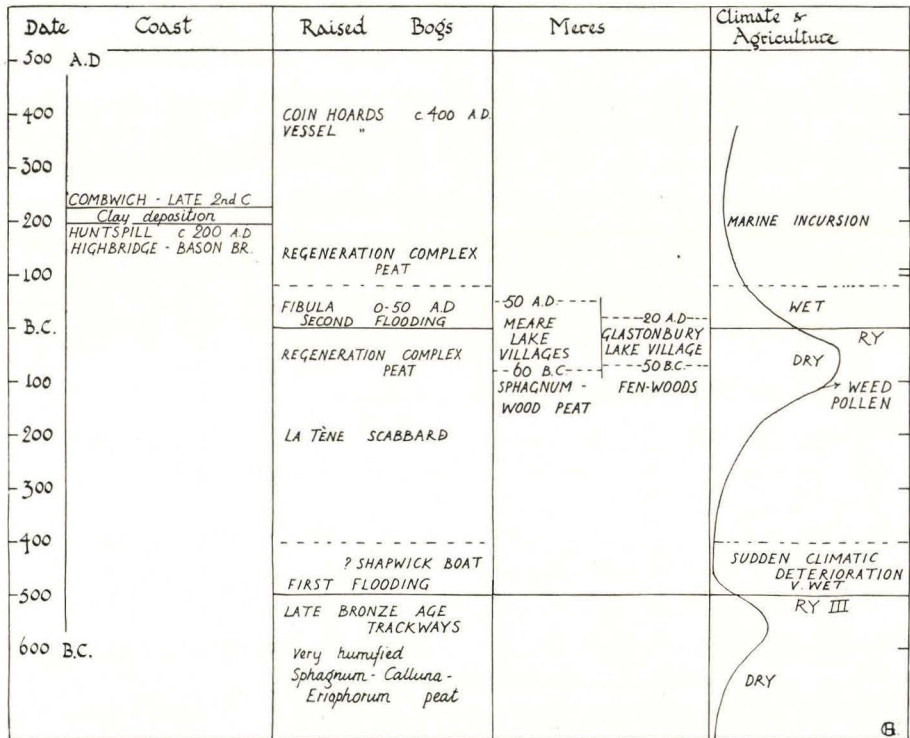 Date
Coast
Raised Bogs
Meres
Climate &
Agriculture
500 A.D
400
300
200
100
B.C.
100
200
300
400
500
600 B.C.
COMBWICH - LATE 2nd C
Clay deposition
HUNTSPILL c 200 A.D
HIGHBRIDGE - BASON BR.
COIN HOARDS c 400 A.D.
VESSEL "
REGENERATION COMPLEX
PEAT
FIBULA 0-50 A.D
SECOND FLOODING
REGENERATION COMPLEX
PEAT
LA TÈNE SCABBARD
? SHAPWICK BOAT
FIRST FLOODING
LATE BRONZE AGE
TRACKWAYS
Very humified
Sphagnum - Calluna -
Eriophorum peat
50 A.D.
MEARE
LAKE
VILLAGES
60 B.C
SPHAGNUM -
WOOD PEAT
20 A.D
GLASTONBURY
LAKE VILLAGE
50 B.C.
FEN-WOODS
MARINE INCURSION
WET
RY
DRY
WEED
POLLEN
SUDDEN CLIMATIC
DETERIORATION
V. WET
RY III
DRY